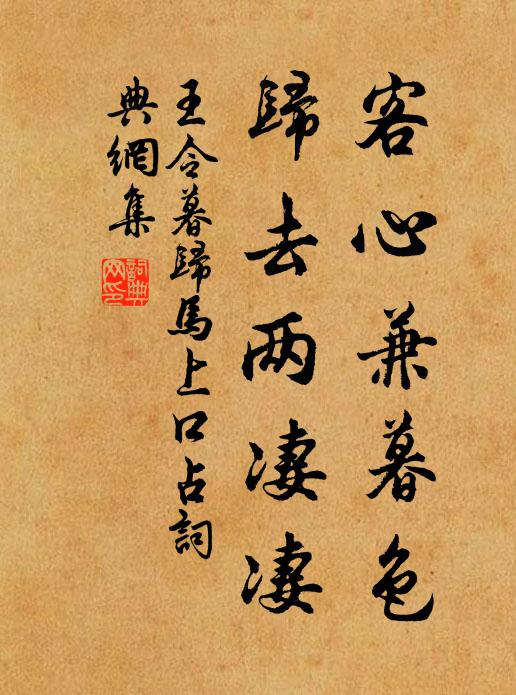 客心兼暮色
歸去两凄凄
王令暮歸馬上口占詞
典網集
詞典网印